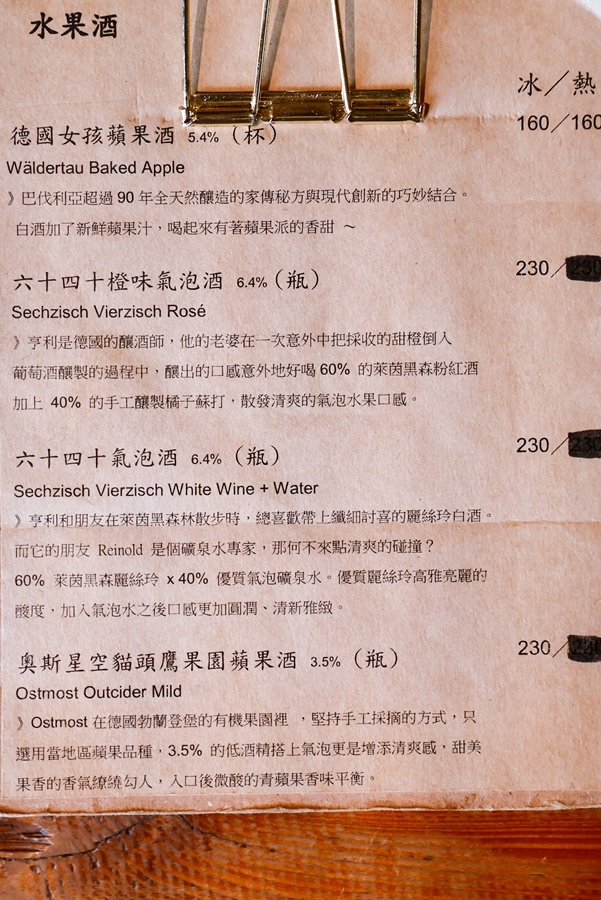 水果酒
冰／熱
德國女孩蘋果酒 5.4% （杯）
160／160
Wäldertau Baked Apple
》巴伐利亞超過 90 年全天然釀造的家傳秘方與現代創新的巧妙結合。
白酒加了新鮮蘋果汁，喝起來有著蘋果派的香甜 ～
六十四十橙味氣泡酒 6.4%（瓶）
230／230
Sechzisch Vierzisch Rosé
》亨利是德國的釀酒師，他的老婆在一次意外中把採收的甜橙倒入
葡萄酒釀製的過程中，釀出的口感意外地好喝 60% 的萊茵黑森粉紅酒
加上 40% 的手工釀製橘子蘇打，散發清爽的氣泡水果口感。
六十四十氣泡酒 6.4% （瓶）
230／230
Sechzisch Vierzisch White Wine + Water
》亨利和朋友在萊茵黑森林散步時，總喜歡帶上纖細討喜的麗絲玲白酒。
而它的朋友 Reinold 是個礦泉水專家，那何不來點清爽的碰撞？
60% 萊茵黑森麗絲玲 x 40% 優質氣泡礦泉水。優質麗絲玲高雅亮麗的
酸度，加入氣泡水之後口感更加圓潤、清新雅緻。
奧斯星空貓頭鷹果園蘋果酒 3.5% （瓶）
230／230
Ostmost Outcider Mild
》Ostmost 在德國勃蘭登堡的有機果園裡 ，堅持手工採摘的方式，只
選用當地區蘋果品種，3.5% 的低酒精搭上氣泡更是增添清爽感，甜美
果香的香氣繚繞勾人，入口後微酸的青蘋果香味平衡。